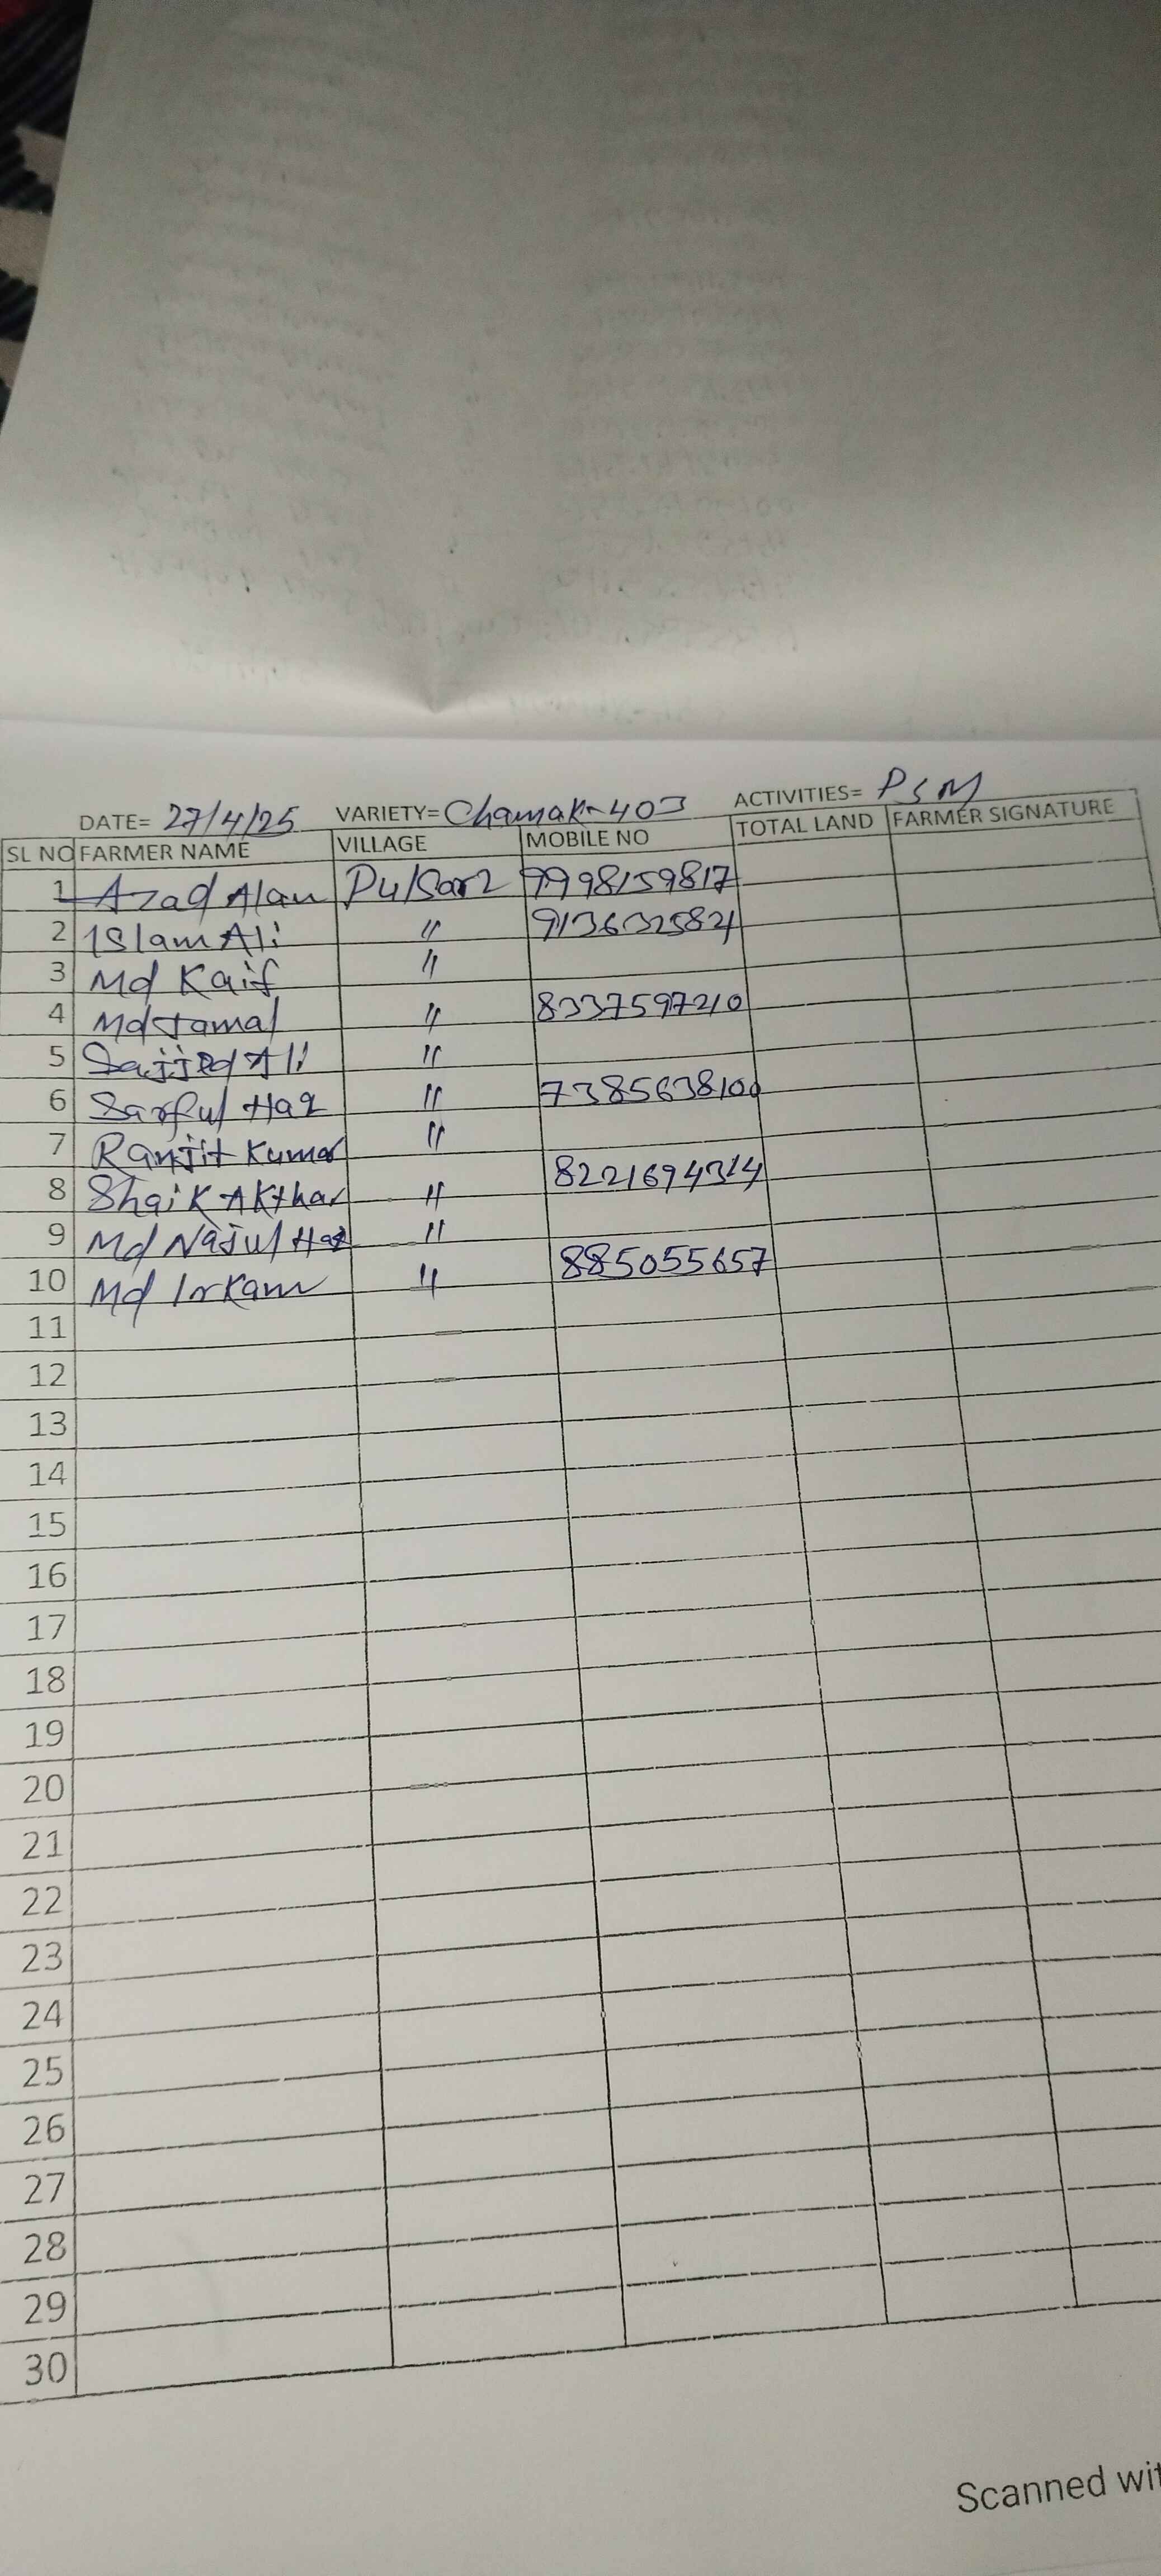 DATE= 27/4/25 VARIETY= Chamak-403 ACTIVITIES= PSM
SL NO FARMER NAME VILLAGE MOBILE NO TOTAL LAND FARMER SIGNATURE
1 Azad Alam 9998159817
2 Islam Ali " 9136325821
3 Md Kaif "
4 Md Jamal " 8337597210
5 Sajjed Ali "
6 Sarful Haq " 7385638100
7 Ranjit Kumar "
8 Shaik Akthar " 8221694314
9 Md Najul Haq "
10 Md Irkam " 885055657
11
12
13
14
15
16
17
18
19
20
21
22
23
24
25
26
27
28
29
30
Scanned wit